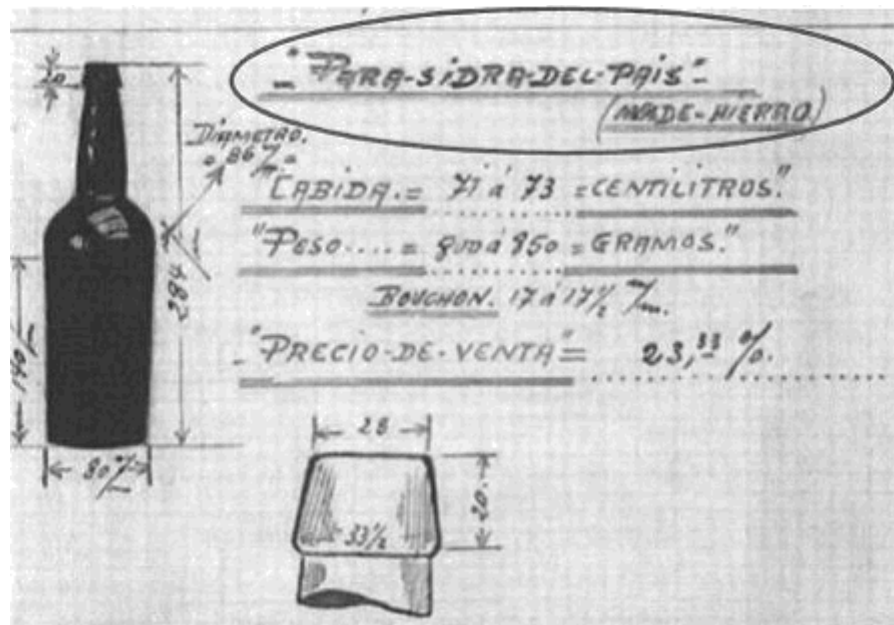 -"PARA-SIDRA-DEL-PAIS"-
(MOLDE-HIERRO)
DIAMETRO.
= 86 m/m =
"CABIDA.= 71 á 73 =CENTILITROS."
"PESO....= 800 á 850 = GRAMOS."
BOUCHON. 17 á 17½ m/m.
-"PRECIO-DE-VENTA"= 23,33 %.
20
284
140
80 m/m
28
20.
33½